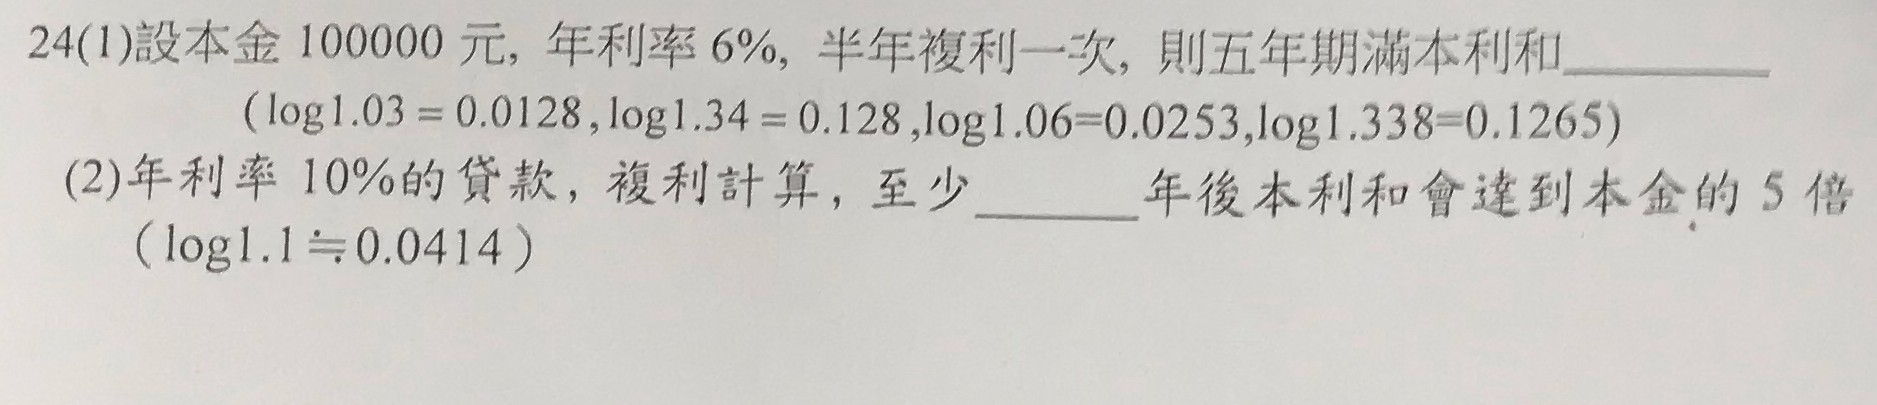 24(1)設本金 100000 元, 年利率 6%, 半年複利一次, 則五年期滿本利和________
(log1.03 = 0.0128,log1.34 = 0.128,log1.06=0.0253,log1.338=0.1265)
(2)年利率 10%的貸款, 複利計算, 至少______年後本利和會達到本金的 5 倍
(log1.1≒0.0414)